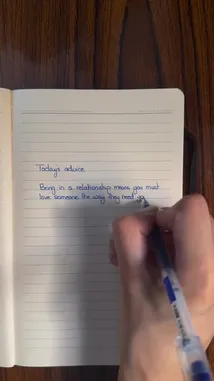 Today's advice
Being in a relationship means you must
love someone the way they need